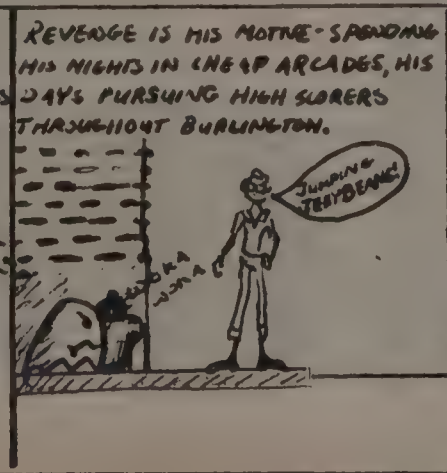 REVENGE IS HIS MOTIVE-SPENDING
HIS NIGHTS IN CHEAP ARCADES, HIS
DAYS PURSUING HIGH SCORERS
THROUGHOUT BURLINGTON.
JUMPING
JELLYBEANS!
WOKA
WOKA